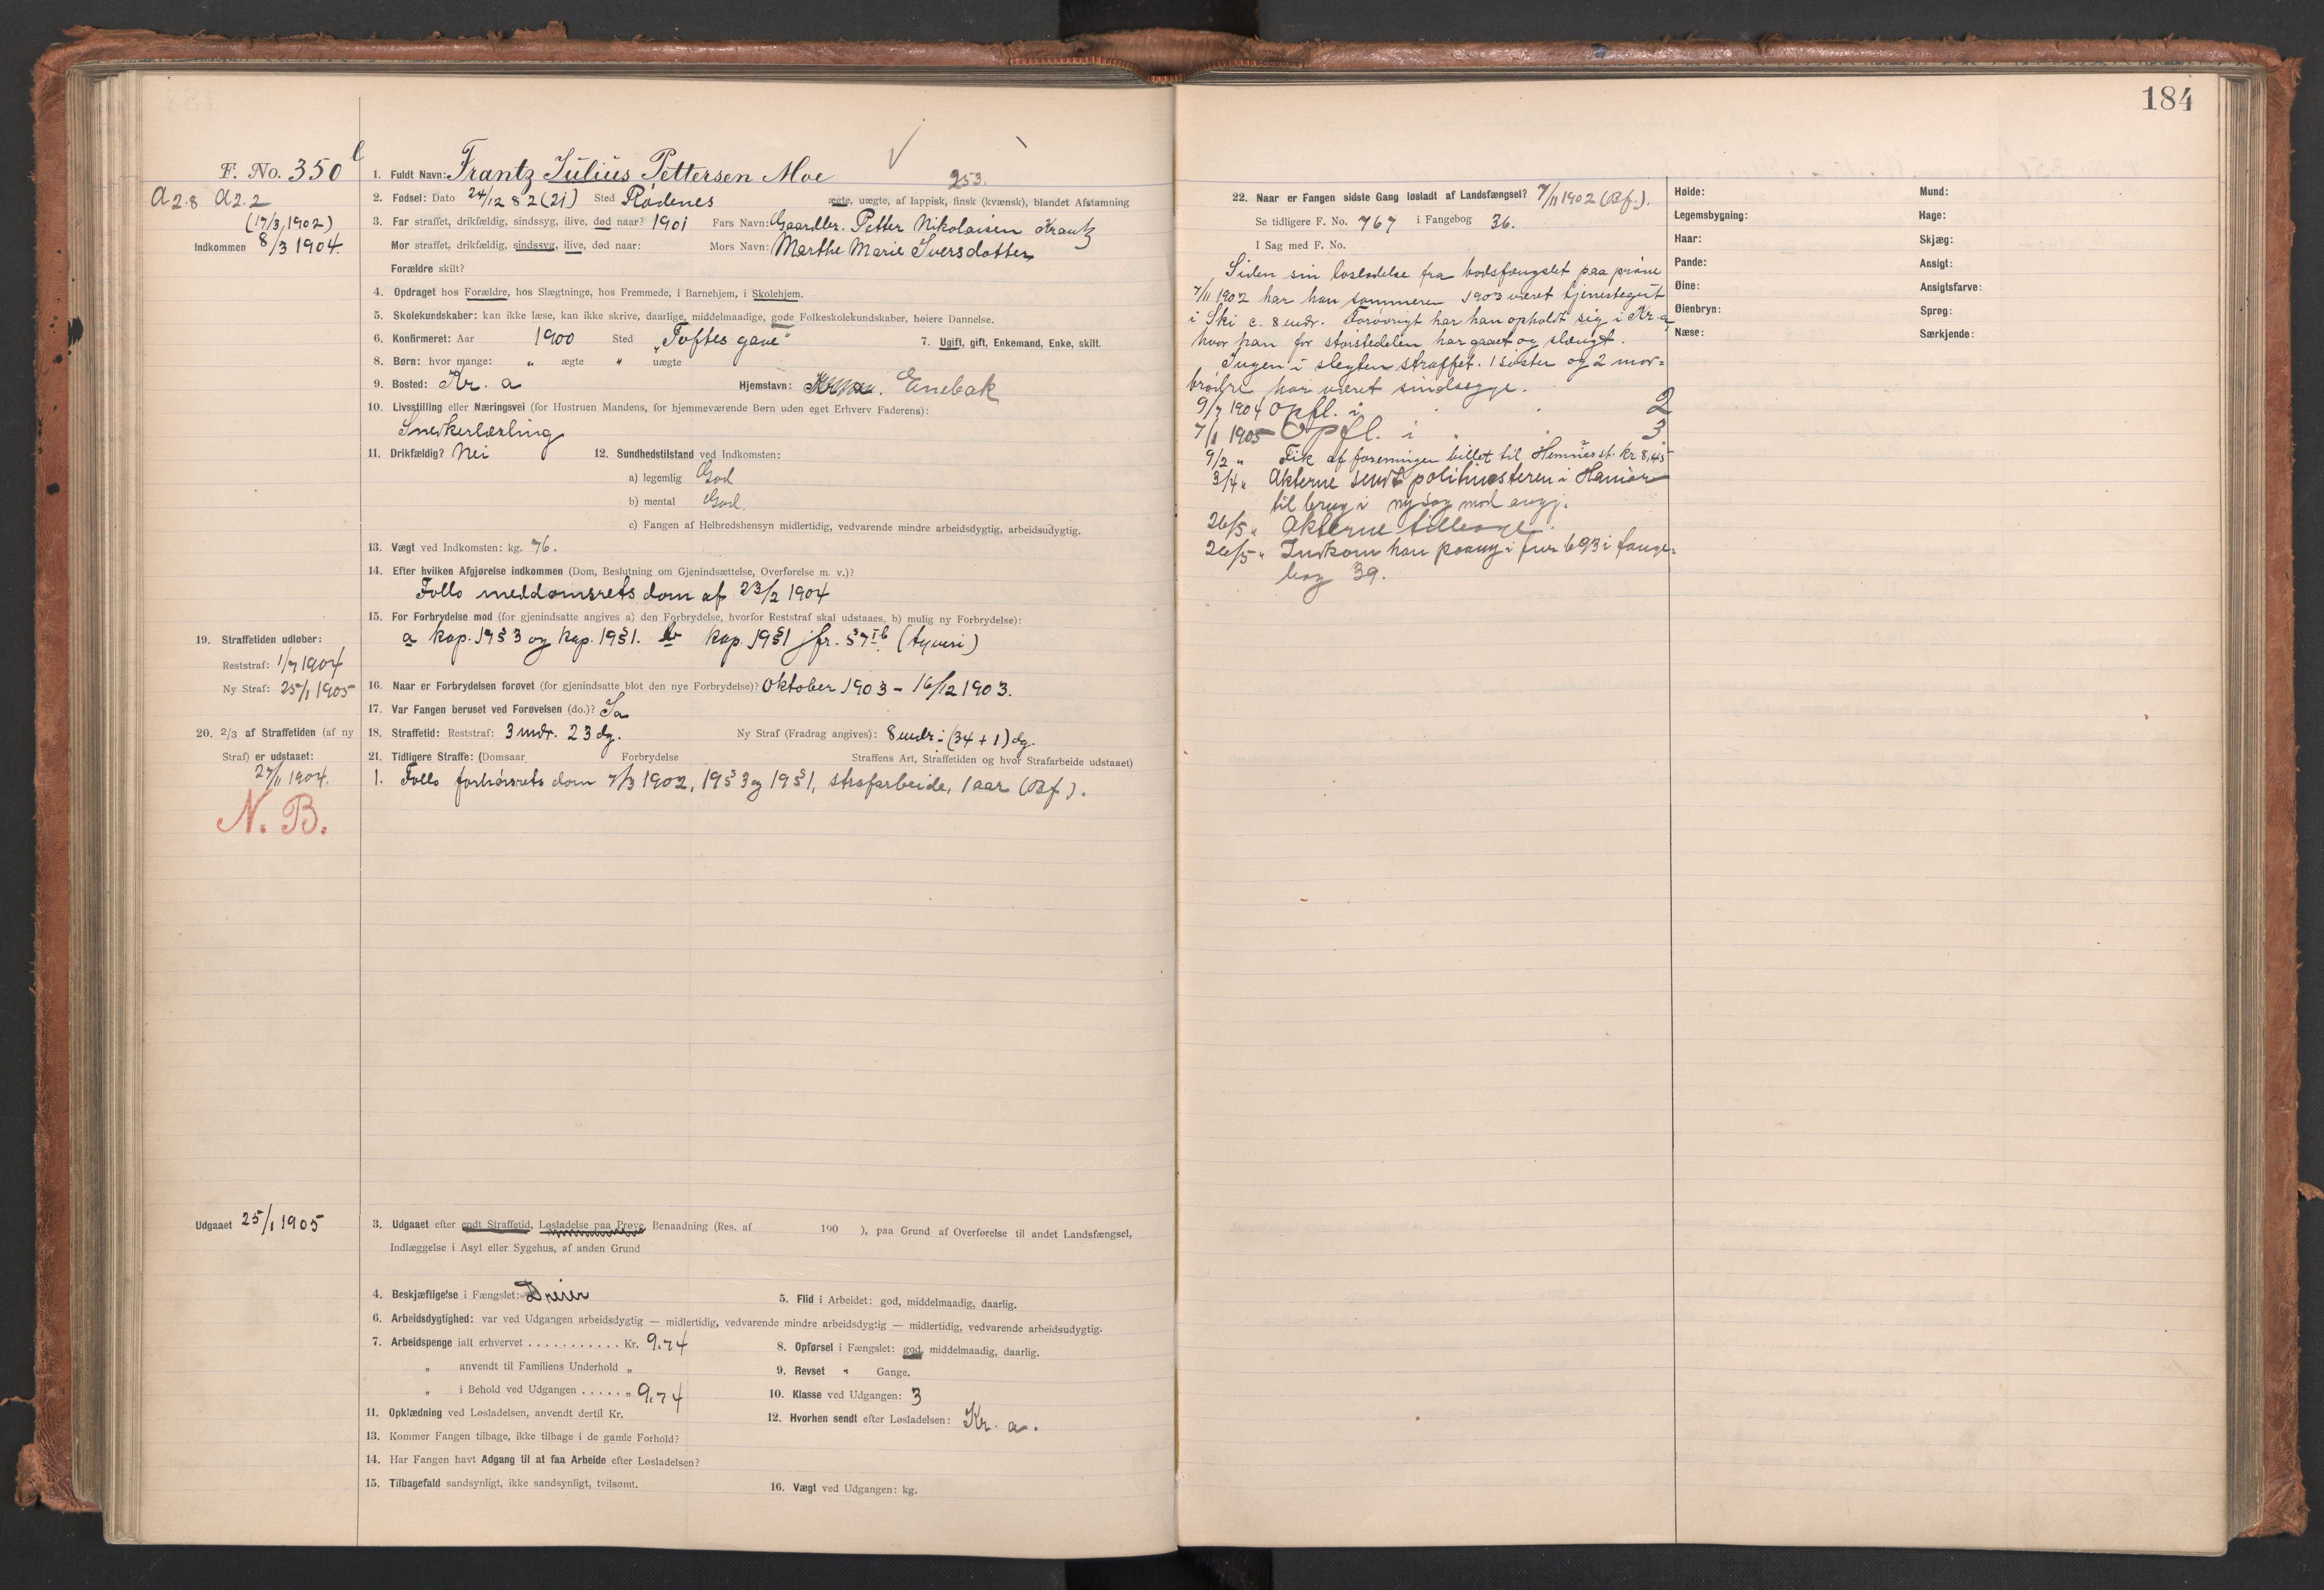 184
F. No. 350
A 2.8 A 2.2
(17/3 1902)
Indkommen 8/3 1904.
1. Fuldt Navn: Frantz Julius Pettersen Moe
253.
2. Fødsel: Dato 24/12 82 (21) Sted Rødenes ægte, uægte, af lappisk, finsk (kvænsk), blandet Afstamning
3. Far straffet, drikfældig, sindssyg, ilive, død naar? 1901 Fars Navn: Gaardbr. Petter Nikolaisen Krantz
Mor straffet, drikfældig, sindssyg, ilive, død naar: Mors Navn: Marthe Marie Iversdotter
Forældre skilt?
4. Opdraget hos Forældre, hos Slægtninge, hos Fremmede, i Barnehjem, i Skolehjem.
5. Skolekundskaber: kan ikke læse, kan ikke skrive, daarlige, middelmaadige, gode Folkeskolekundskaber, høiere Dannelse.
6. Konfirmeret: Aar 1900 Sted „Toftes gave" 7. Ugift, gift, Enkemand, Enke, skilt.
8. Børn: hvor mange: „ ægte „ uægte
9. Bosted: Kr. a Hjemstavn: Enebak
10. Livsstilling eller Næringsvei (for Hustruen Mandens, for hjemmeværende Børn uden eget Erhverv Faderens):
Snedkerlærling
11. Drikfældig? Nei 12. Sundhedstilstand ved Indkomsten:
a) legemlig God
b) mental God.
c) Fangen af Helbredshensyn midlertidig, vedvarende mindre arbeidsdygtig, arbeidsudygtig.
13. Vægt ved Indkomsten: kg. 76.
14. Efter hvilken Afgjørelse indkommen (Dom, Beslutning om Gjenindsættelse, Overførelse m. v.)?
Follo meddomsrets dom af 23/2 1904
15. For Forbrydelse mod (for gjenindsatte angives a) den Forbrydelse, hvorfor Reststraf skal udstaaes, b) mulig ny Forbrydelse):
a kap. 19 § 3 og kap. 19 § 1. b kap 19 § 1 jfr. § 7 I b (tyveri)
19. Straffetiden udløber:
Reststraf: 1/7 1904
Ny Straf: 25/1 1905
16. Naar er Forbrydelsen forøvet (for gjenindsatte blot den nye Forbrydelse)? Oktober 1903 – 16/12 1903.
17. Var Fangen beruset ved Forøvelsen (do.)? Ja
20. 2/3 af Straffetiden (af ny
Straf) er udstaaet:
27/11 1904.
N. B.
18. Straffetid: Reststraf: 3 mdr. 23 dg. Ny Straf (Fradrag angives): 8 mdr ÷ (34 + 1) dg.
21. Tidligere Straffe: (Domsaar Forbrydelse Straffens Art, Straffetiden og hvor Strafarbeide udstaaet)
1. Follo forhørsrets dom 7/3 1902, 19 § 3 og 19 § 1, strafarbeide, 1 aar (Bf).
Udgaaet 25/1 1905
3. Udgaaet efter endt Straffetid, Løsladelse paa Prøve, Benaadning (Res. af 190 ), paa Grund af Overførelse til andet Landsfængsel,
Indlæggelse i Asyl eller Sygehus, af anden Grund
4. Beskjæftigelse i Fængslet: Dreier 5. Flid i Arbeidet: god, middelmaadig, daarlig.
6. Arbeidsdygtighed: var ved Udgangen arbeidsdygtig — midlertidig, vedvarende mindre arbeidsdygtig — midlertidig, vedvarende arbeidsudygtig.
7. Arbeidspenge ialt erhvervet . . . . . . . . . . . Kr. 9.74 8. Opførsel i Fængslet: god, middelmaadig, daarlig.
„ anvendt til Familiens Underhold „ 9. Revset „ Gange.
„ i Behold ved Udgangen . . . . . „ 9.74 10. Klasse ved Udgangen: 3
11. Opklædning ved Løsladelsen, anvendt dertil Kr. 12. Hvorhen sendt efter Løsladelsen: Kr. a.
13. Kommer Fangen tilbage, ikke tilbage i de gamle Forhold?
14. Har Fangen havt Adgang til at faa Arbeide efter Løsladelsen?
15. Tilbagefald sandsynligt, ikke sandsynligt, tvilsomt. 16. Vægt ved Udgangen: kg.
22. Naar er Fangen sidste Gang løsladt af Landsfængsel? 7/11 1902 (Bf.).
Se tidligere F. No. 767 i Fangebog 36.
I Sag med F. No.
Siden sin løsladelse fra bodsfængslet paa prøve
7/11 1902 har han sommeren 1903 været tjenestegut
i Ski c. 8 mdr. Forøvrigt har han opholdt sig i Kr. a
hvor han for størstedelen har gaaet og slængt.
Ingen i slegten straffet. 1 søster og 2 mor-
brødre har været sindssyge.
9/7 1904 Opfl. i . . 2
7/1 1905 Opfl. i . . 3
9/2 „ Fik af foreningen billet til Hemnes st. kr 8,45
3/4 „ Akterne sendt politimesteren i Hamar
til brug i ny sag mod angj.
26/5 „ Akterne tilbage.
26/5 „ Indkom han paany i fnr 693 i fange-
bog 39.
Høide:
Legemsbygning:
Haar:
Pande:
Øine:
Øienbryn:
Næse:
Mund:
Hage:
Skjæg:
Ansigt:
Ansigtsfarve:
Sprog:
Særkjende: